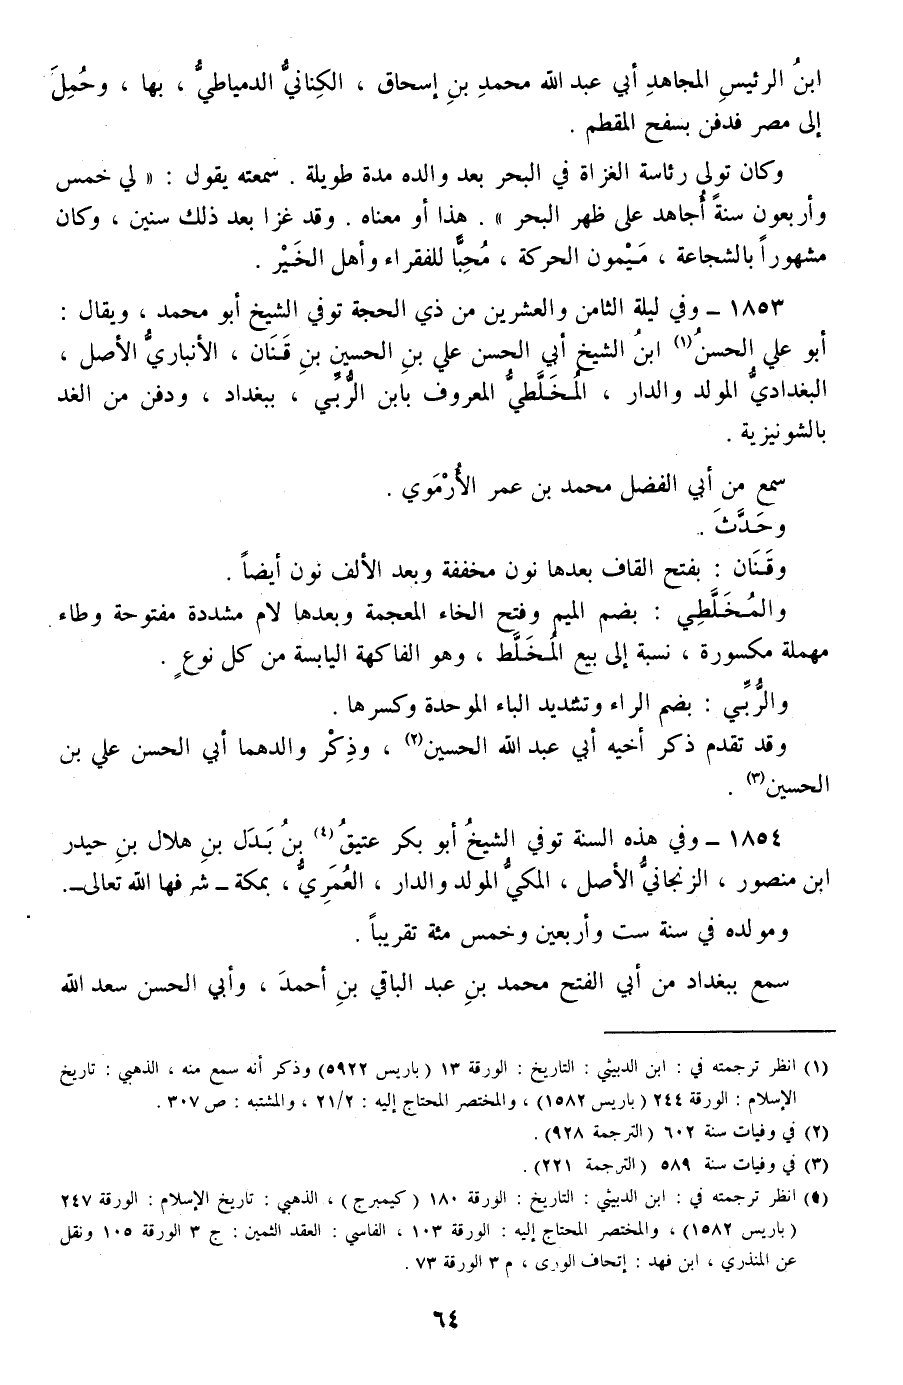 ابنُ الرئيسِ المجاهدِ أبي عبد الله محمدِ بنِ إسحاق ، الكِنانيُّ الدمياطيُّ ، بها ، وحُمِلَ
إلى مصر فدفن بسفح المقطم .
وكان تولى رئاسة الغزاة في البحر بعد والده مدة طويلة . سمعته يقول : « لي خمس
وأربعون سنةً أُجاهد على ظهر البحر » . هذا أو معناه . وقد غزا بعد ذلك سنين ، وكان
مشهوراً بالشجاعة ، مَيْمون الحركة ، مُحِبًّا للفقراء وأهل الخَيْر .
١٨٥٣ ــ وفي ليلة الثامن والعشرين من ذي الحجة توفي الشيخ أبو محمد ، ويقال :
أبو علي الحسنُ(١) ابنُ الشيخ أبي الحسن علي بنِ الحسينِ بنِ قَنَان ، الأنباريُّ الأصل ،
البغداديُّ المولد والدار ، المُخَلَّطيُّ المعروف بابن الرُّبِّي ، ببغداد ، ودفن من الغد
بالشونيزية .
سمع من أبي الفضل محمد بن عمر الأُرْمَوي .
وحَدَّثَ .
وقَنَان : بفتح القاف بعدها نون مخففة وبعد الألف نون أيضاً .
والمُخَلَّطِي : بضم الميم وفتح الخاء المعجمة وبعدها لام مشددة مفتوحة وطاء
مهملة مكسورة ، نسبة إلى بيع المُخَلَّط ، وهو الفاكهة اليابسة من كل نوعٍ .
والرُّبِّي : بضم الراء وتشديد الباء الموحدة وكسرها .
وقد تقدم ذكر أخيه أبي عبد الله الحسين(٢) ، وذِكْر والدهما أبي الحسن علي بن
الحسين(٣) .
١٨٥٤ ــ وفي هذه السنة توفي الشيخُ أبو بكر عتيقُ(٤) بنُ بَدَل بنِ هلال بنِ حيدر
ابن منصور ، الزنجانيُّ الأصل ، المكيُّ المولد والدار ، العُمَرِيُّ ، بمكة ــ شرفها الله تعالى ــ.
ومولده في سنة ست وأربعين وخمس مئة تقريباً .
سمع ببغداد من أبي الفتح محمد بنِ عبد الباقي بنِ أحمدَ ، وأبي الحسن سعد الله
(١) انظر ترجمته في : ابن الدبيثي : التاريخ : الورقة ١٣ (باريس ٥٩٢٢) وذكر أنه سمع منه ، الذهبي : تاريخ
الإسلام : الورقة ٢٤٤ (باريس ١٥٨٢) ، والمختصر المحتاج إليه : ٢١/٢ ، والمشتبه : ص ٣٠٧ .
(٢) في وفيات سنة ٦٠٢ (الترجمة ٩٢٨) .
(٣) في وفيات سنة ٥٨٩ (الترجمة ٢٢١) .
(٤) انظر ترجمته في : ابن الدبيثي : التاريخ : الورقة ١٨٠ (كيمبرج) ، الذهبي : تاريخ الإسلام : الورقة ٢٤٧
(باريس ١٥٨٢) ، والمختصر المحتاج إليه : الورقة ١٠٣ ، الفاسي : العقد الثمين : ج ٣ الورقة ١٠٥ ونقل
عن المنذري ، ابن فهد : إتحاف الورى ، م ٣ الورقة ٧٣ .
٦٤